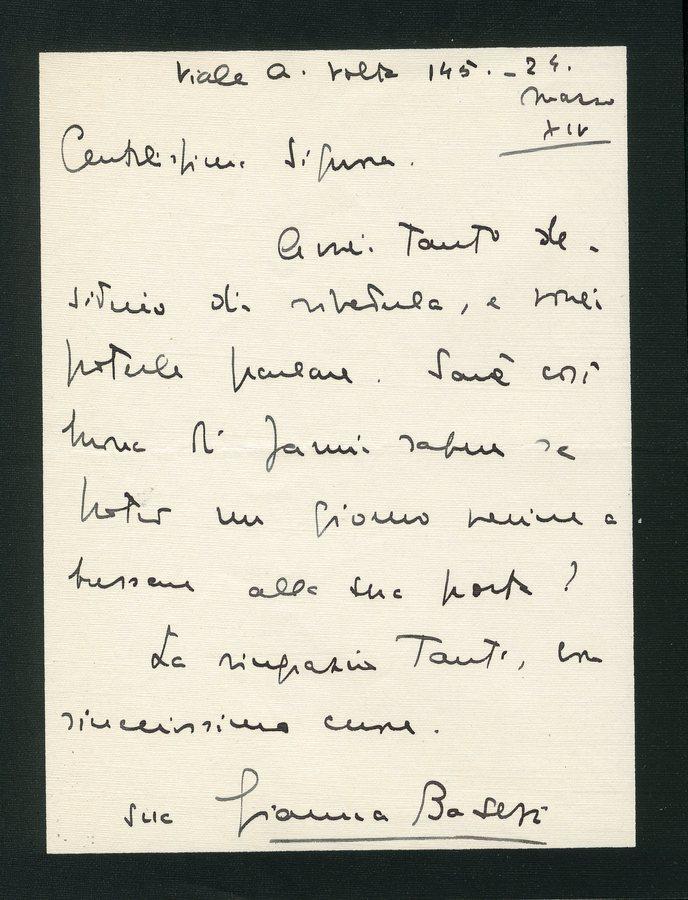 Viale A. Volta 145. - 24.
marzo
XIV
Gentilissima Signora.
Avrei tanto de-
siderio di rivederla, e vorrei
poterle parlare. Sarà così
buona di farmi sapere se
potrò un giorno venire a
bussare alla sua porta?
La ringrazio tanto, con
sincerissimo cuore.
sua Gianna Basevi